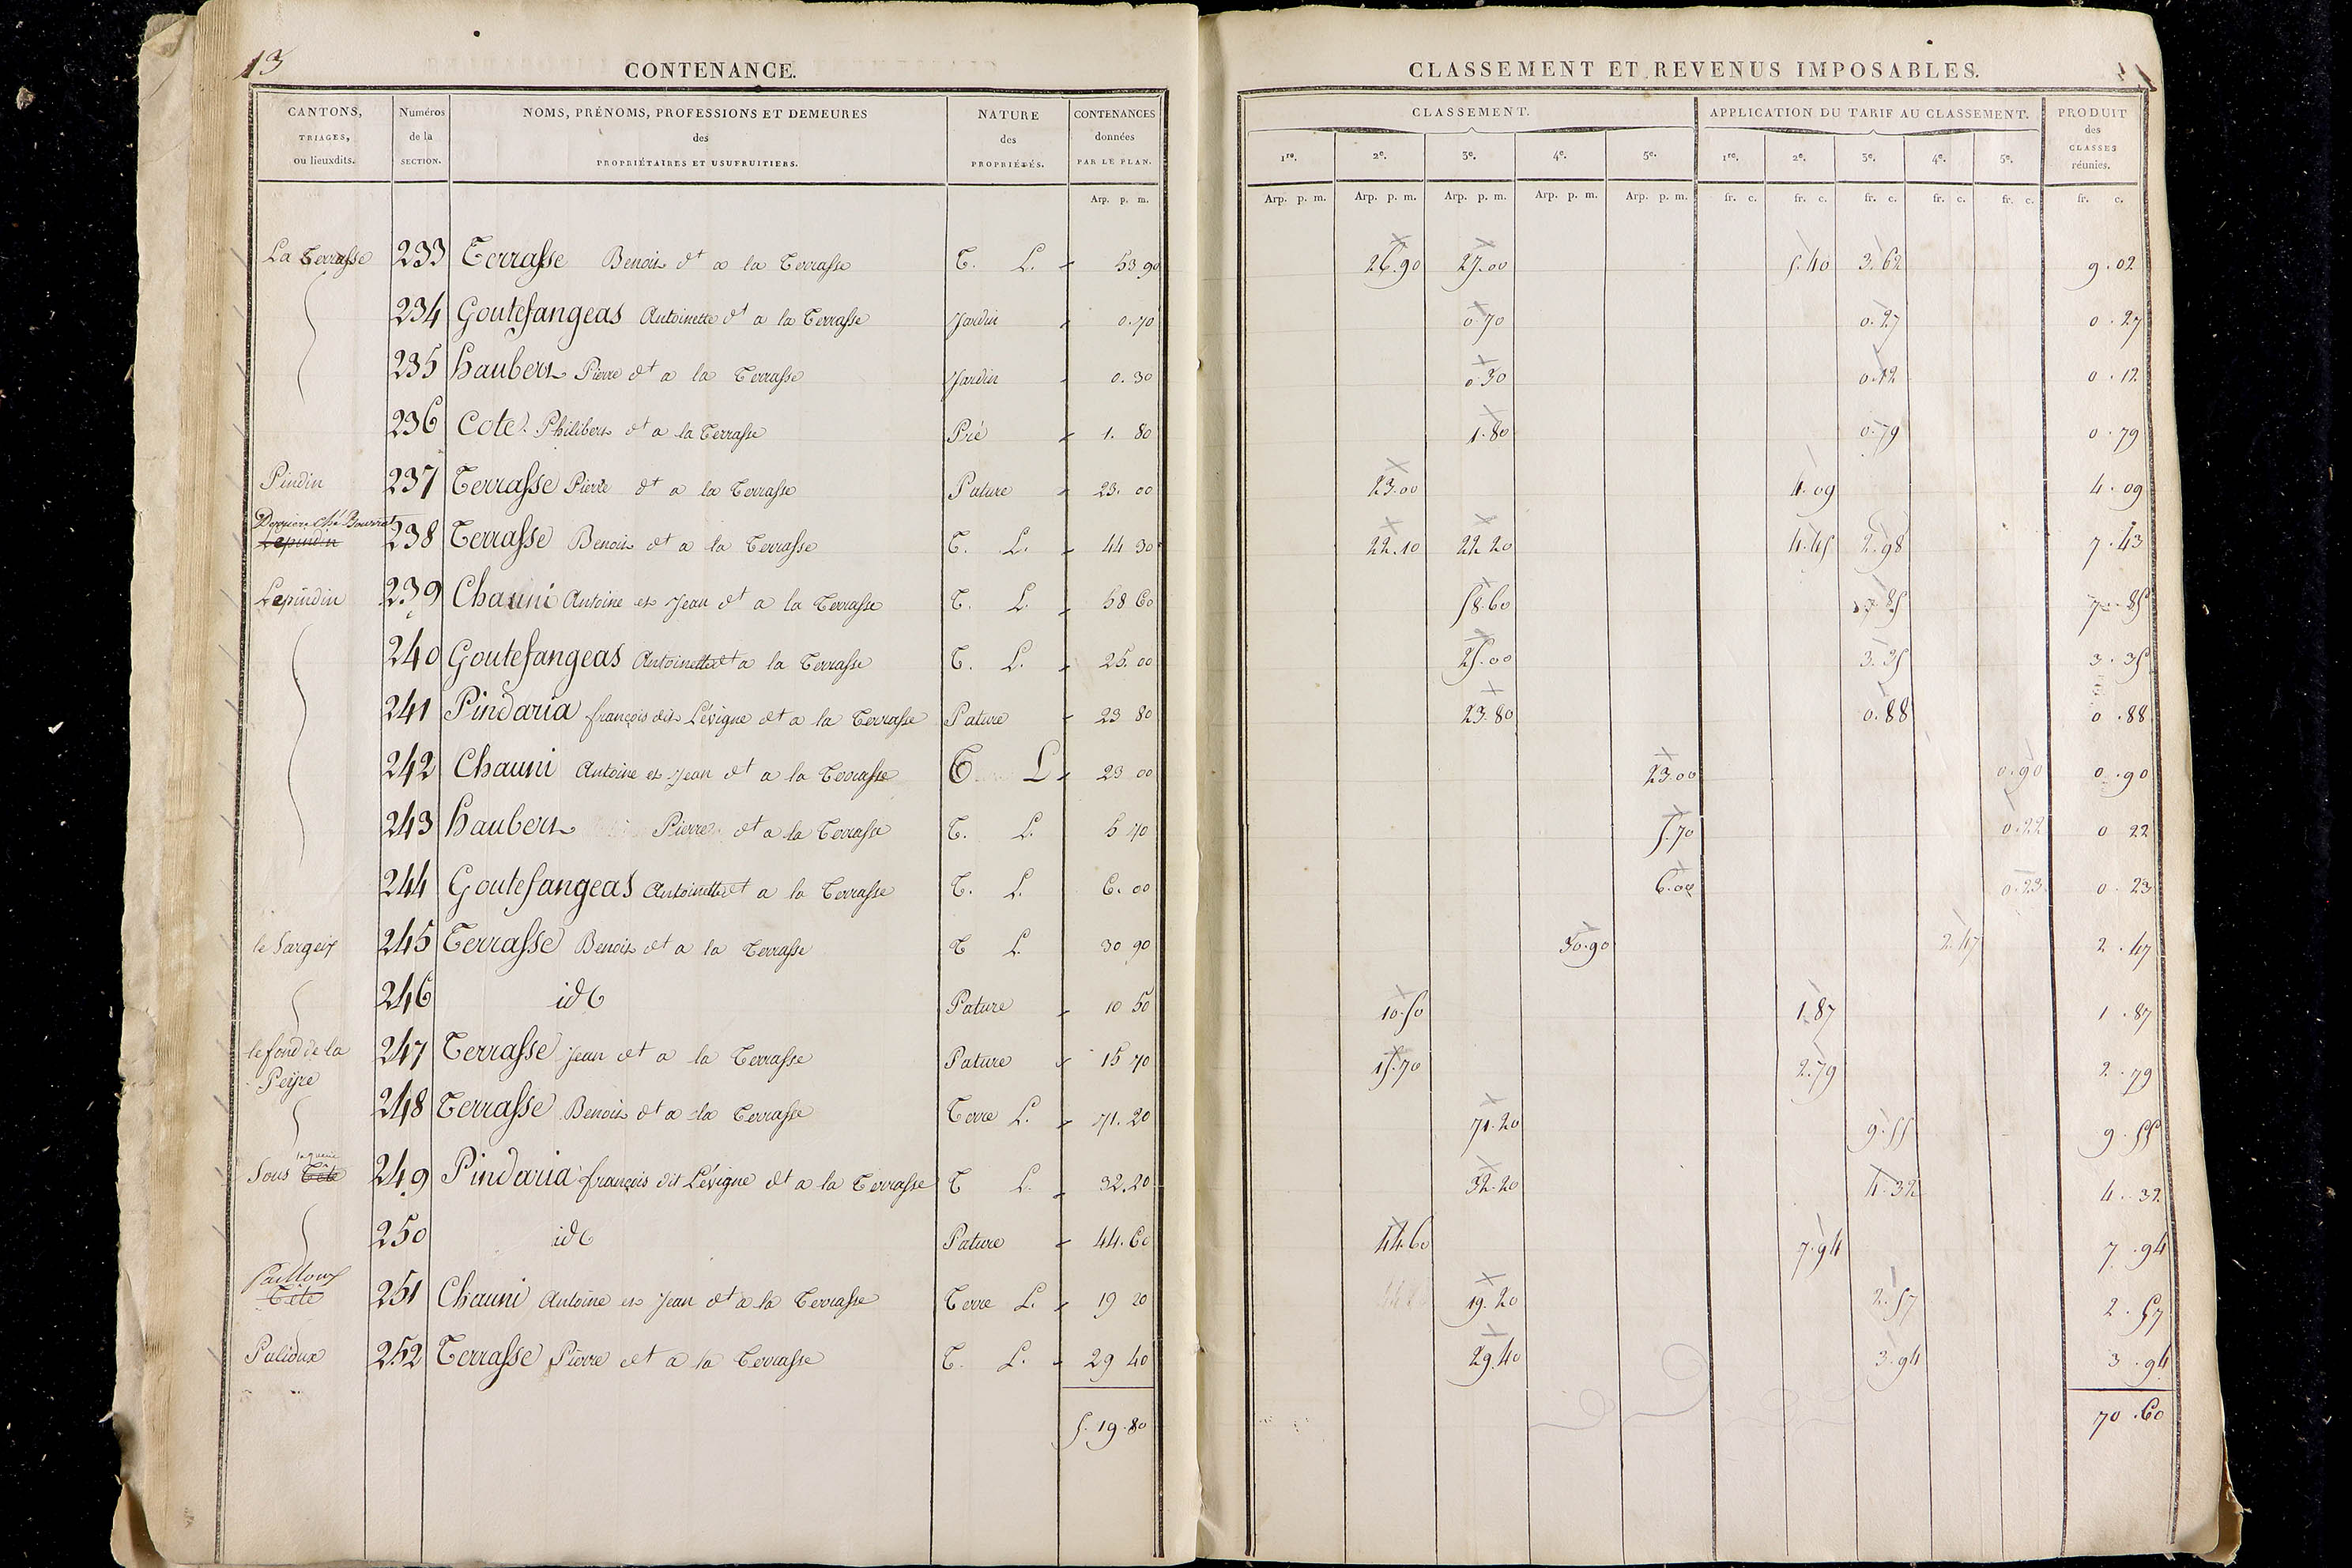 13
CONTENANCE.
CANTONS, TRIAGES, ou lieuxdits. | Numéros de la SECTION. | NOMS, PRÉNOMS, PROFESSIONS ET DEMEURES des PROPRIÉTAIRES ET USUFRUITIERS. | NATURE des PROPRIÉTÉS. | CONTENANCES données PAR LE PLAN.
Arp. p. m.
La Terrasse 233 Terrasse Benoit dt a la Terrasse T. L. 53 90
234 Goutefangeas Antoinette dt a la Terrasse Jardin 0.70
235 haubert Pierre dt a la Terrasse Jardin 0.30
236 Cote Philibert dt a la Terrasse Pré 1. 80
Pindin 237 Terrasse Pierre dt a la Terrasse Pature 23. 00
Derriere Ché Bourrat
Lepindin 238 Terrasse Benoit dt a la Terrasse T. L. 44 30
Lepindin 239 Chauni Antoine et Jean dt a la Terrasse T. L. 58 60
240 Goutefangeas Antoinette dt a la Terrasse T. L. 25.00
241 Pindaria françois dit Lévigne dt a la Terrasse Pature 23 80
242 Chauni Antoine et Jean dt a la Terrasse T L 23 00
243 haubert Pierre dt a la Terrasse T. L. 5 70
244 Goutefangeas Antoinette dt a la Terrasse T. L. 6. 00
le Sargeix 245 Terrasse Benoit dt a la Terrasse T L. 30 90
246 id Pature 10 50
le fond de la Peyre 247 Terrasse Jean dt a la Terrasse Pature 15 70
248 Terrasse Benoit dt a la Terrasse Terre L. 71. 20
Sous Tête 249 Pindaria françois dit Lévigne dt a la Terrasse T L. 32.20
250 id Pature 44.60
Tête 251 Chauni Antoine et Jean dt a la Terrasse Terre L. 19 20
Palidux 252 Terrasse Pierre dt a la Terrasse T. L. 29 40
5.19.80
CLASSEMENT ET REVENUS IMPOSABLES.
CLASSEMENT. | APPLICATION DU TARIF AU CLASSEMENT. | PRODUIT des CLASSES réunies.
1re. 2e. 3e. 4e. 5e. 1re. 2e. 3e. 4e. 5e.
Arp. p. m. Arp. p. m. Arp. p. m. Arp. p. m. Arp. p. m. fr. c. fr. c. fr. c. fr. c. fr. c. fr. c.
26.90 27.00 5.40 3.62 9.02
0.70 0.27 0.27
0.30 0.12 0.12
1.80 0.79 0.79
23.00 4.09 4.09
22.10 22 20 4.45 2.98 7.43
58.60 7.85 7.85
25.00 3.35 3.35
23.80 0.88 0.88
23.00 0.90 0.90
5.70 0.22 0 22
6.00 0.23 0.23
30.90 2.47 2.47
10.50 1.87 1.87
15.70 2.79 2.79
71.20 9.55 9.55
32.20 4.32 4.32
44.60 7.94 7.94
19.20 2.57 2.57
29.40 3.94 3.94
70.60